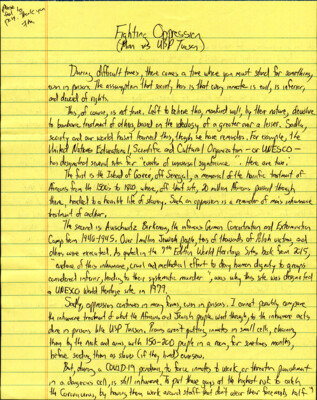 Fighting Oppression
(Men vs USP Tucson)
During difficult times, there comes a time where you must stand for something,
even in prison. The assumption that society has is that every inmate is evil, is inferior,
and devoid of rights.
This, of course, is not true. Left to believe this, mankind will, by their nature,
to barbaric treatment of others, based on the ideology of a greater over a lesser. Sadly,
society and our world hasn't learned this, though we have reminders. For example, the
United Nations Educational, Scientific and Cultural Organization - or UNESCO -
has designated several sites for "events of unusual significance". Here are two:
The first is the Island of Goree, off Senegal, a memorial of the horrific treatment of
Africans from the 1500s to 1810 where, off that site, 20 million Africans passed through
there, headed to a hopeful life of slavery. Such an oppression is a reminder of man's inhumane
treatment of another.
The second is Auschwitz Birkenau, the infamous German Concentration and Extermination
Camp from 1940-1945. Over 1 million Jewish people, tens of thousands of Polish victims, and
others were executed. As quoted in the 7th Edition World Heritage Sites book from 2015,
evidence of this inhumane, cruel and methodical effort to deny human dignity to groups
considered inferior, leading to their systematic murder", was why this site was designated
a UNESCO World Heritage site in 1979.
Sadly, oppression continues in many forms, even in prisons. I cannot possibly compare
the inhumane treatment of what the Africans and Jewish people went through, to the inhumane acts
done in prisons like USP Tucson. From
them by the neck and arms, with 150-200 people in a room, for sometimes months
before sending them as slaves (if they lived) overseas.
But, during a COVID-19 pandemic, to force inmates to work, or threaten punishment
in a dangerous cell, is still inhumane. To put these guys at the highest risk to catch
the Coronavirus, by having them work around staff that don't wear their facemasks half